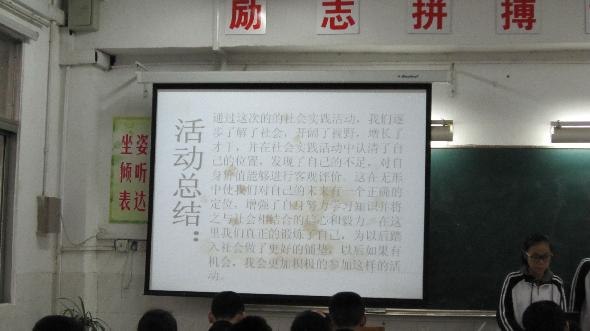 励志拼搏
坐姿
倾听
表达
活动总结：
通过这次的的社会实践活动，我们逐
步了解了社会，开阔了视野，增长了
才干，并在社会实践活动中认清了自
己的位置，发现了自己的不足，对自
身价值能够进行客观评价。这在无形
中使我们对自己的未来有一个正确的
定位，增强了自身努力学习知识并将
之与社会相结合的信心和毅力。在这
里我们真正的锻炼了自己，为以后踏
入社会做了更好的铺垫，以后如果有
机会，我会更加积极的参加这样的活
动。